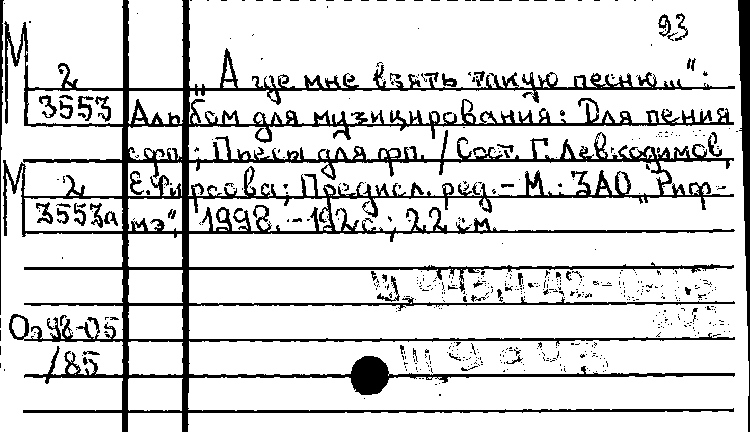 93
М 2 „А где мне взять такую песню...“:
3553 Альбом для музицирования: Для пения
с фп.; Пьесы для фп. / Сост. Г. Левкодимов,
М 2 Е. Фирсова; Предисл. ред. - М.: ЗАО „Риф-
3553а мэ“, 1998. - 192 с.; 22 см.
Щ 943.4-42-
Оэ 98-05
/85 Щ 9 я 43